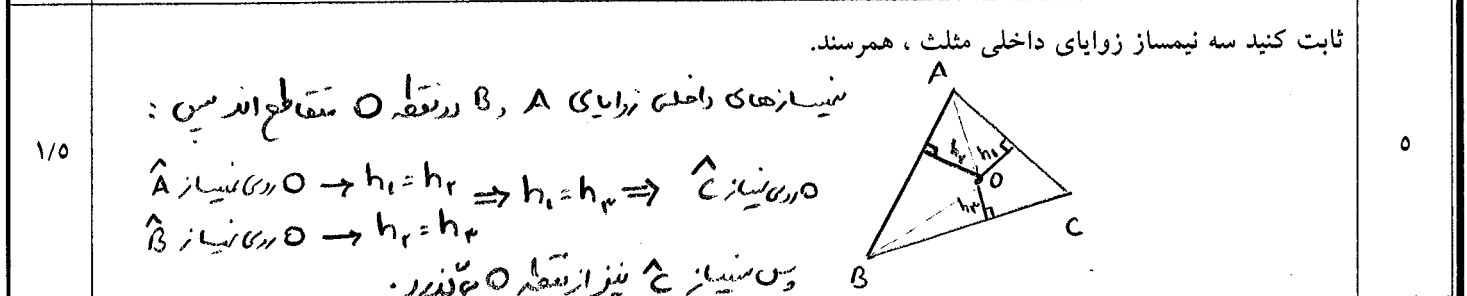 ثابت کنید سه نیمساز زوایای داخلی مثلث ، همرسند.
نیمسازهای داخلی زوایای A و B در نقطه O متقاطع اند پس :
O روی نیمساز Â → h₁ = h₂
O روی نیمساز B̂ → h₂ = h₃
⇒ h₁ = h₃ ⇒ O روی نیمساز Ĉ
پس نیمساز Ĉ نیز از نقطه O می‌گذرد.
A
h₂ h₁
O
h₃
C
B
۱/۵
۵